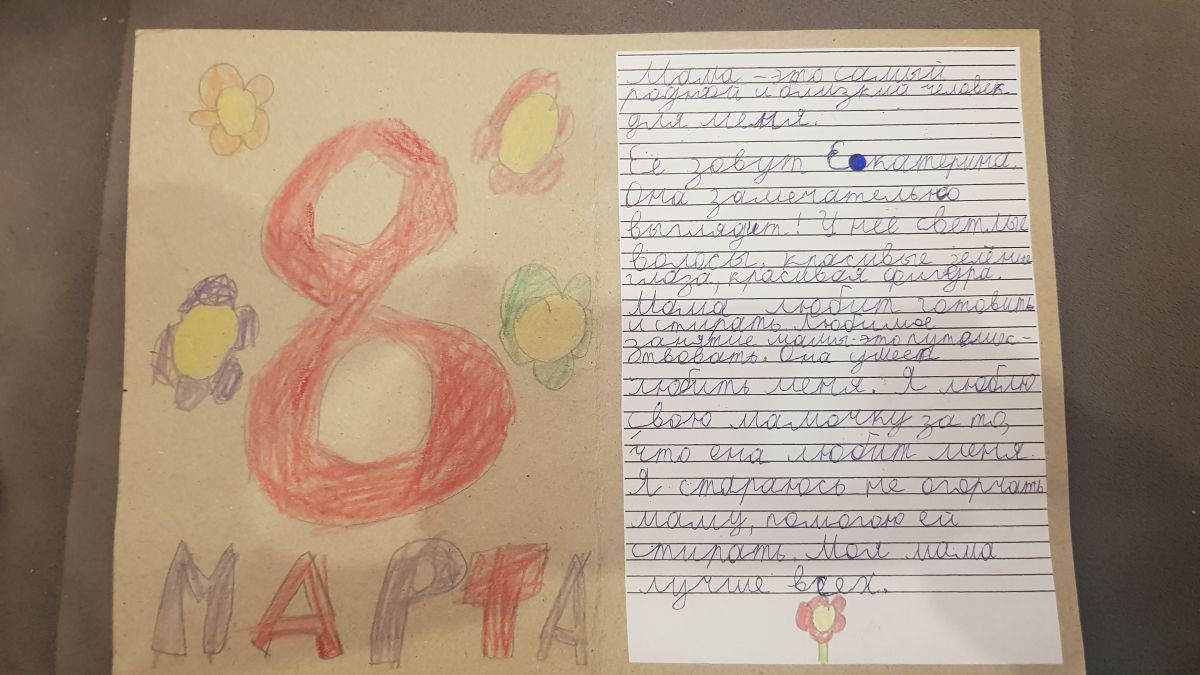 8
МАРТА
Мама - это самый
родной и близкий человек
для меня.
Её зовут Екатерина.
Она замечательно
выглядит! У неё светлые
волосы, красивые зелёные
глаза, красивая фигура.
Мама любит готовить
и стирать. Любимое
занятие мамы-это путешес-
твовать. Она умеет
любить меня. Я люблю
свою мамочку за то,
что она любит меня.
Я стараюсь не огорчать
маму, помогою ей
стирать. Моя мама
лучше всех.